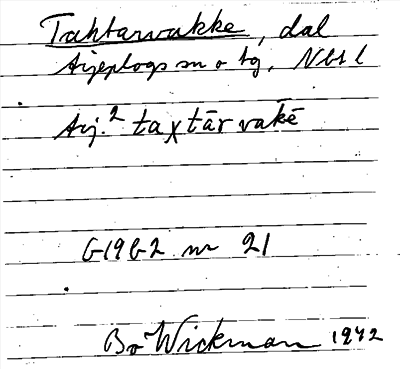 Tahtarvakke, dal
Arjeplogs sn o tg, Nbt l
Arj.² taχtārvakē
G1962 nr 21
Bo Wickman 1942